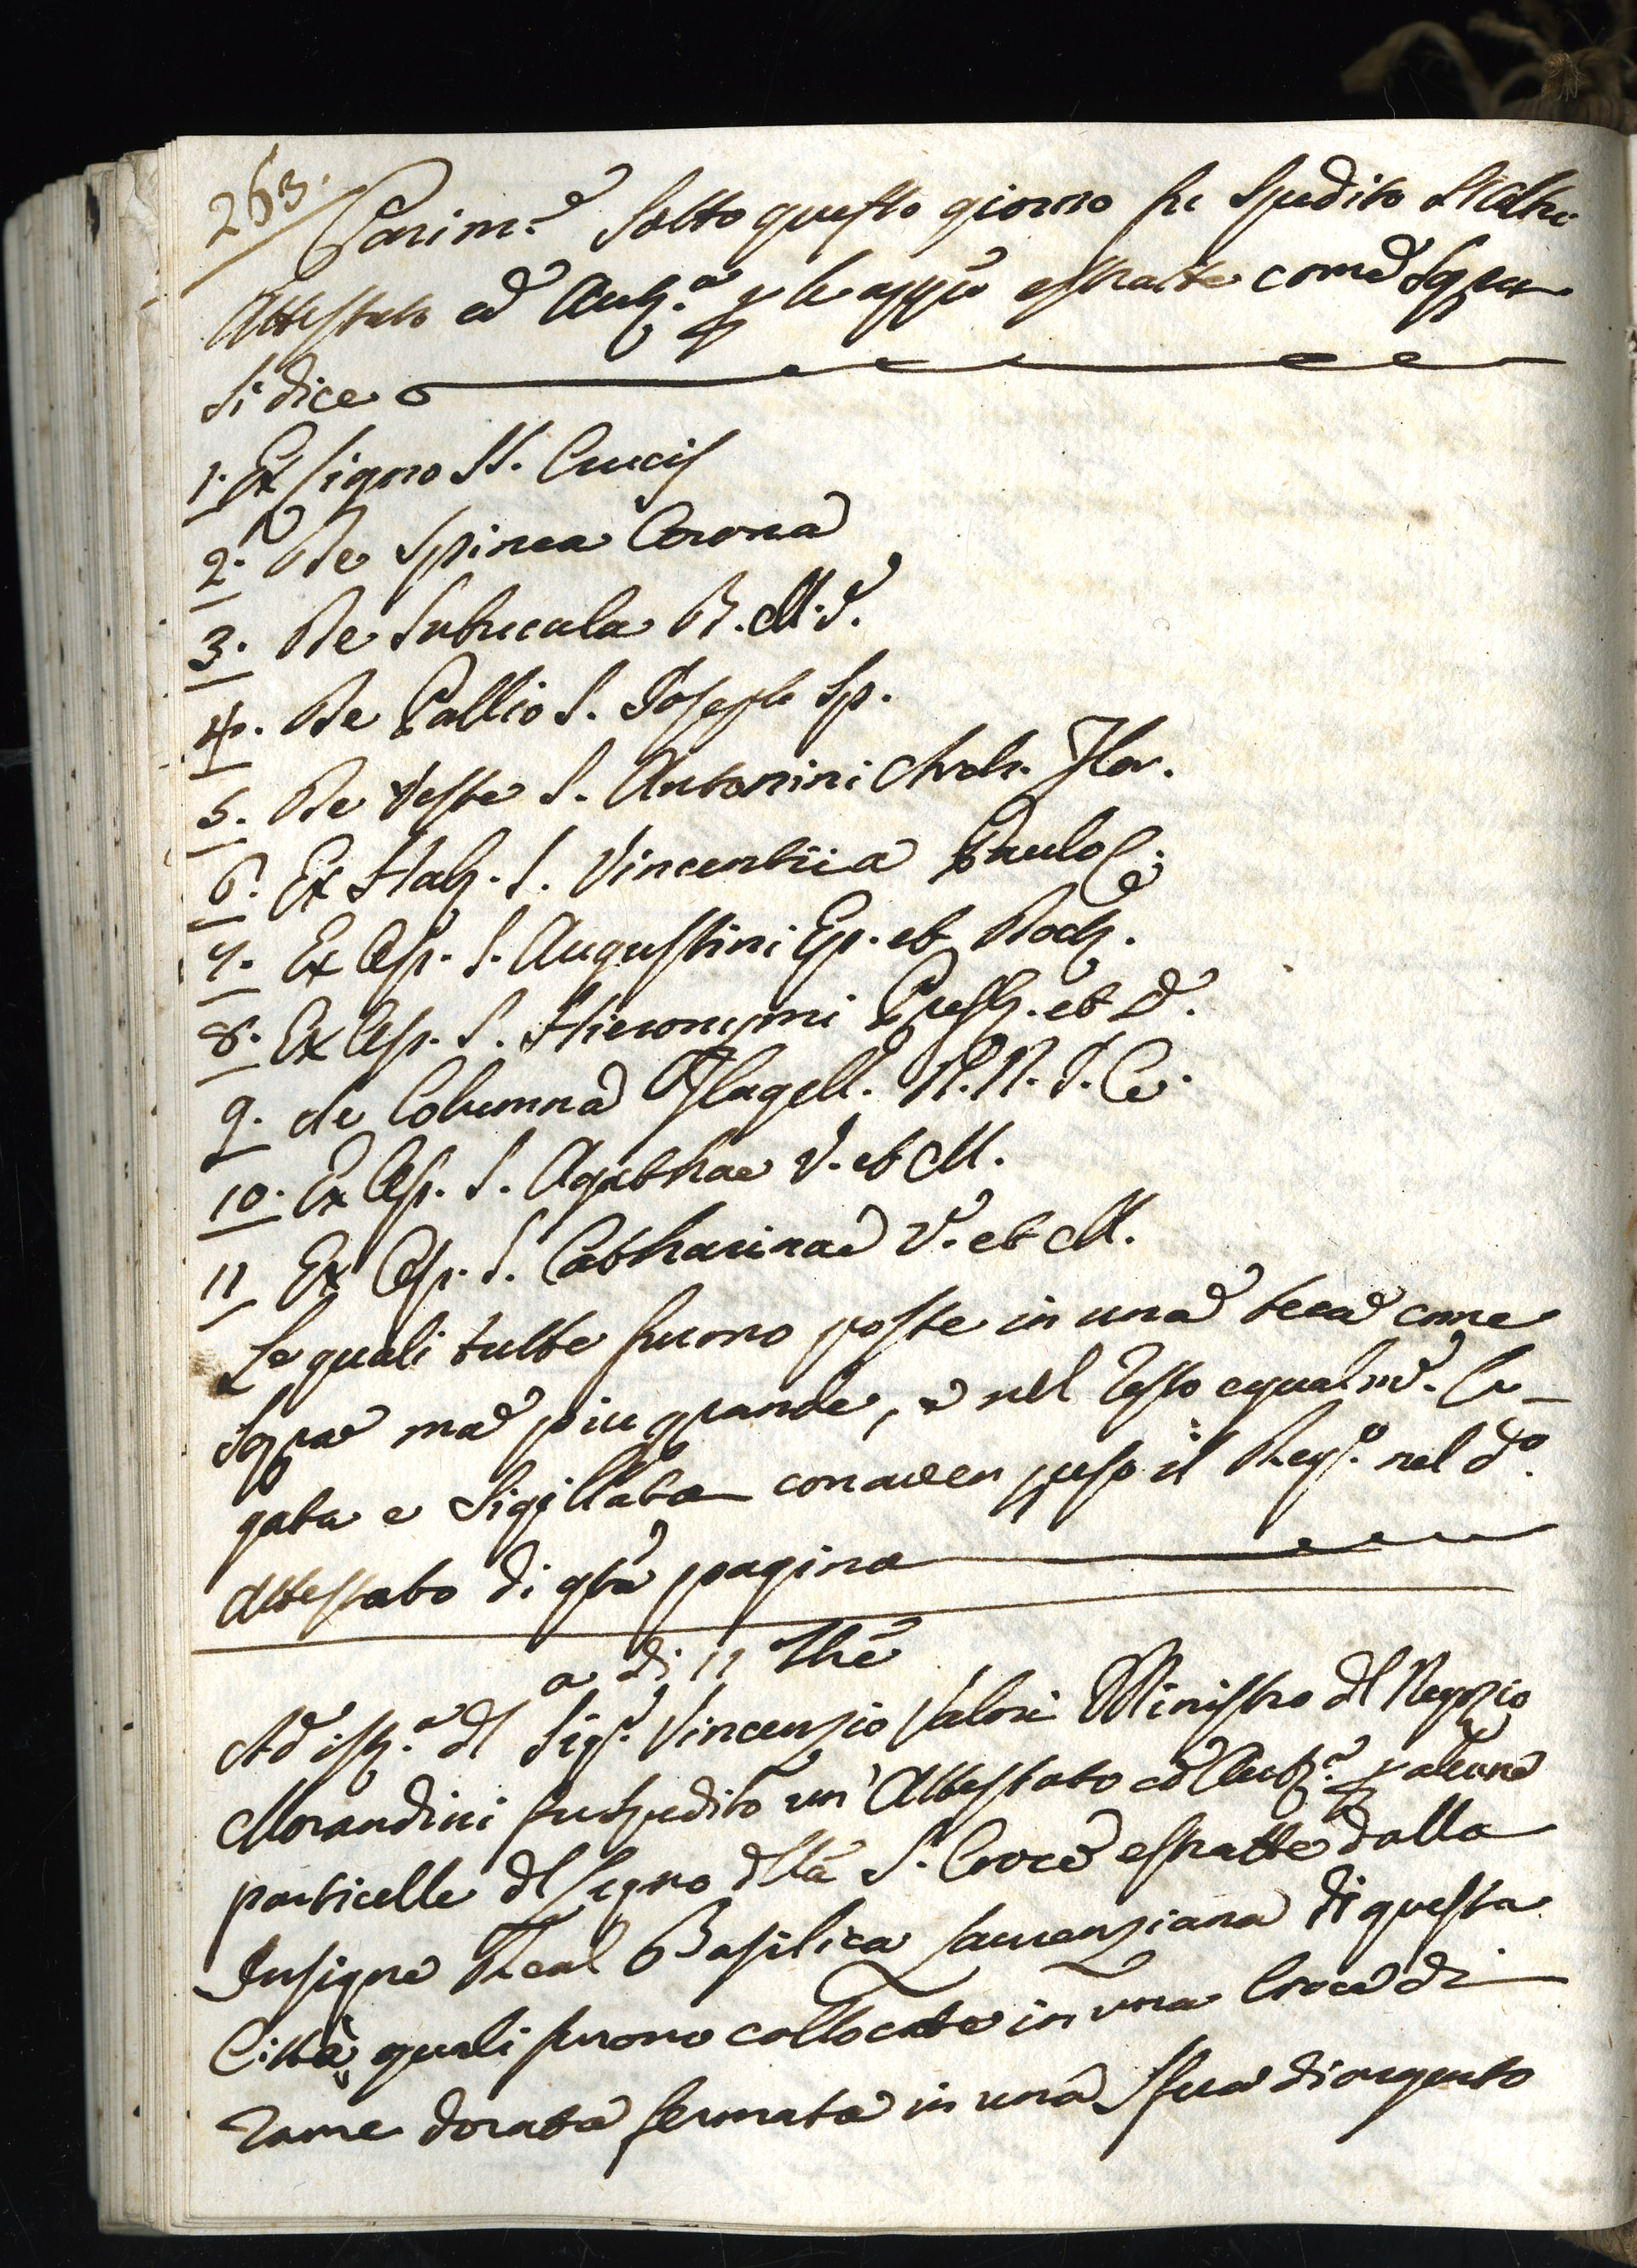 263.
Parim.e sotto questo giorno fu spedito
Attestato ed Aut.a p le app̃o estratte come sopra
si dice
1. Ex ligno SS. Crucis
2. De Spinea Corona
3. De Subucula B. M. V.
4. De Pallio S. Joseph Sp.
5. De Veste S. Antonini Arch. Flor.
6. Ex Hab. S. Vincentii a Paulo C.
7. Ex Oss. S. Augustini Ep. et Doct.
8. Ex Oss. S. Hieronymi Presb. et D.
9. de Columna Flagell. D. N. J. C.
10. Ex Oss. S. Agathae V. et M.
11 Ex Oss. S. Catharinae V. et M.
Le quali tutte furono poste in una teca come
sopra ma piu grande, e nel resto egualm.e le-
gata e sigillata con aver preso il Reg.o nel d.o
Attestato di q̃ta pagina
a di 11 
Ad ist.a dl Sig.r Vincenzio Valori Ministro dl Negozio
Morandini fu spedito un' Attestato ed Aut.a p alcune
particelle dl Legno dlla S. Croce estratte dalla
Insigne Real Basilica Laurenziana di questa
Città, quali furono collocate in una Croce di
rame dorata fermata in una sfera di argento